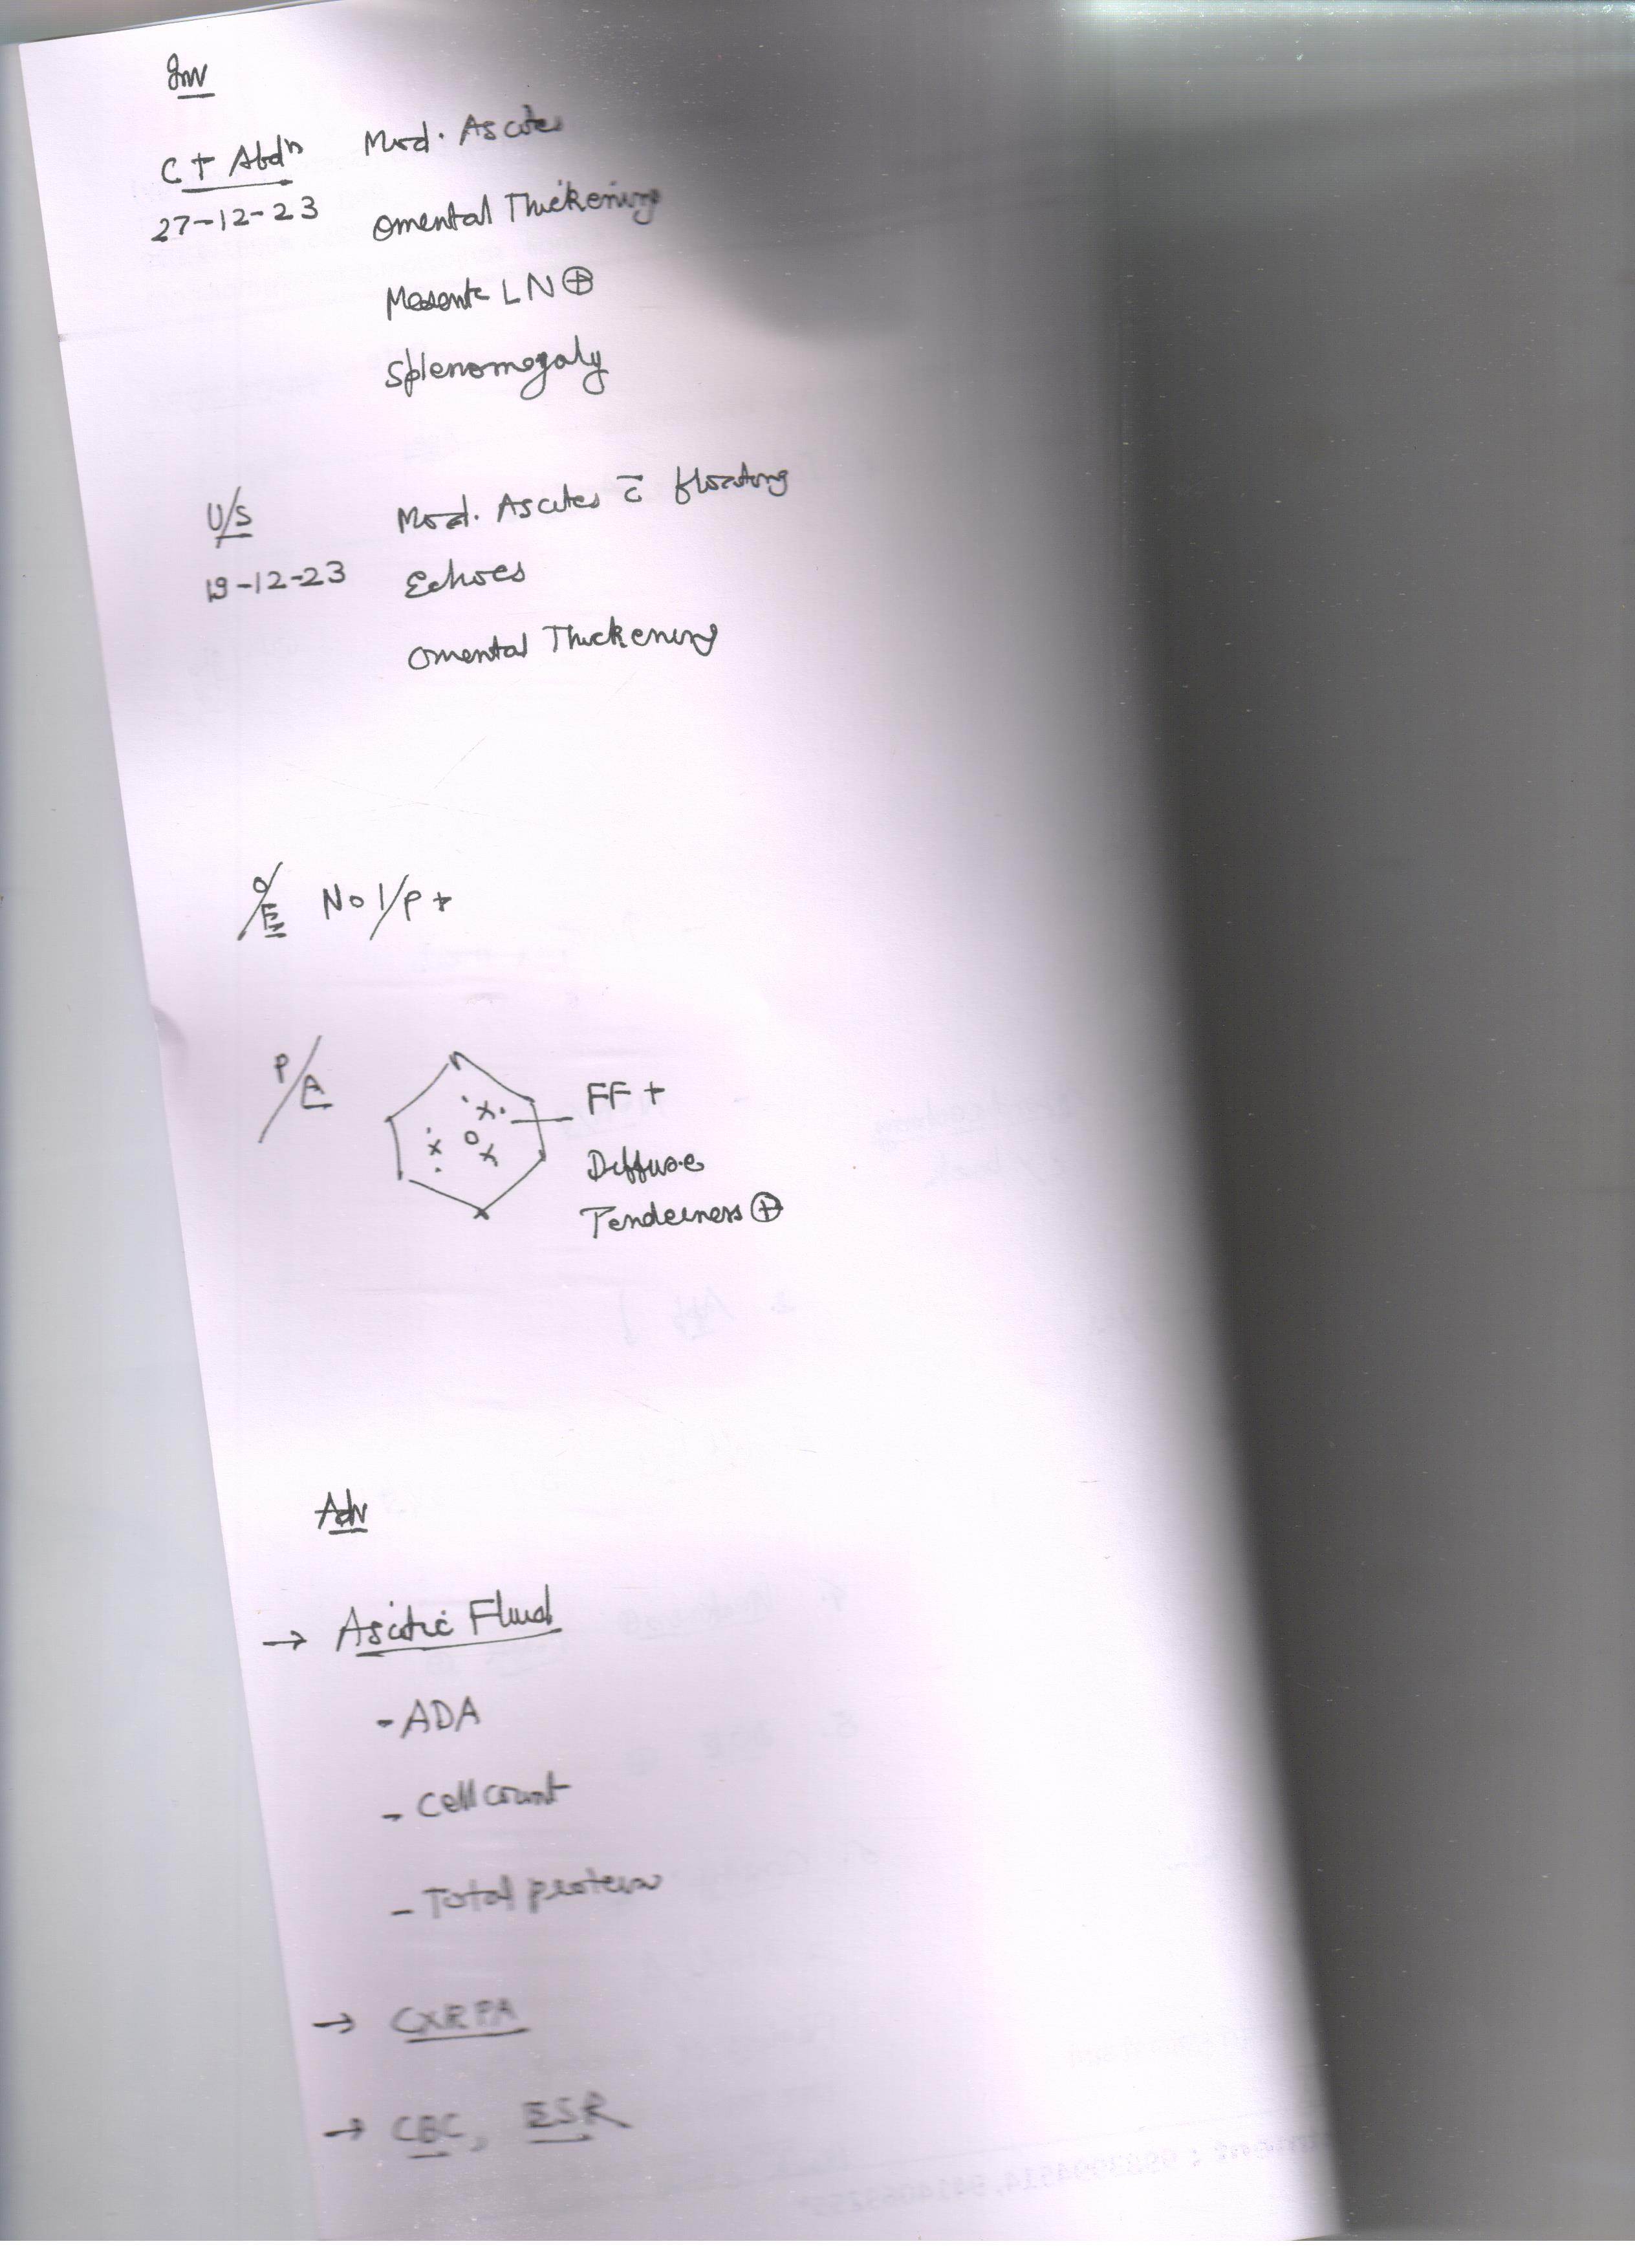 Inv
CT Abdn Mod. Ascites
27-12-23 Omental Thickening
Mesente LN ⊕
Splenomegaly
U/S Mod. Ascites c̄ floating
19-12-23 Echoes
Omental Thickening
O/E No I/P +
P/A FF +
Diffuse
Tenderness ⊕
Adv
→ Ascitic Fluid
- ADA
- Cell count
- Total protein
→ CXR PA
→ CBC, ESR